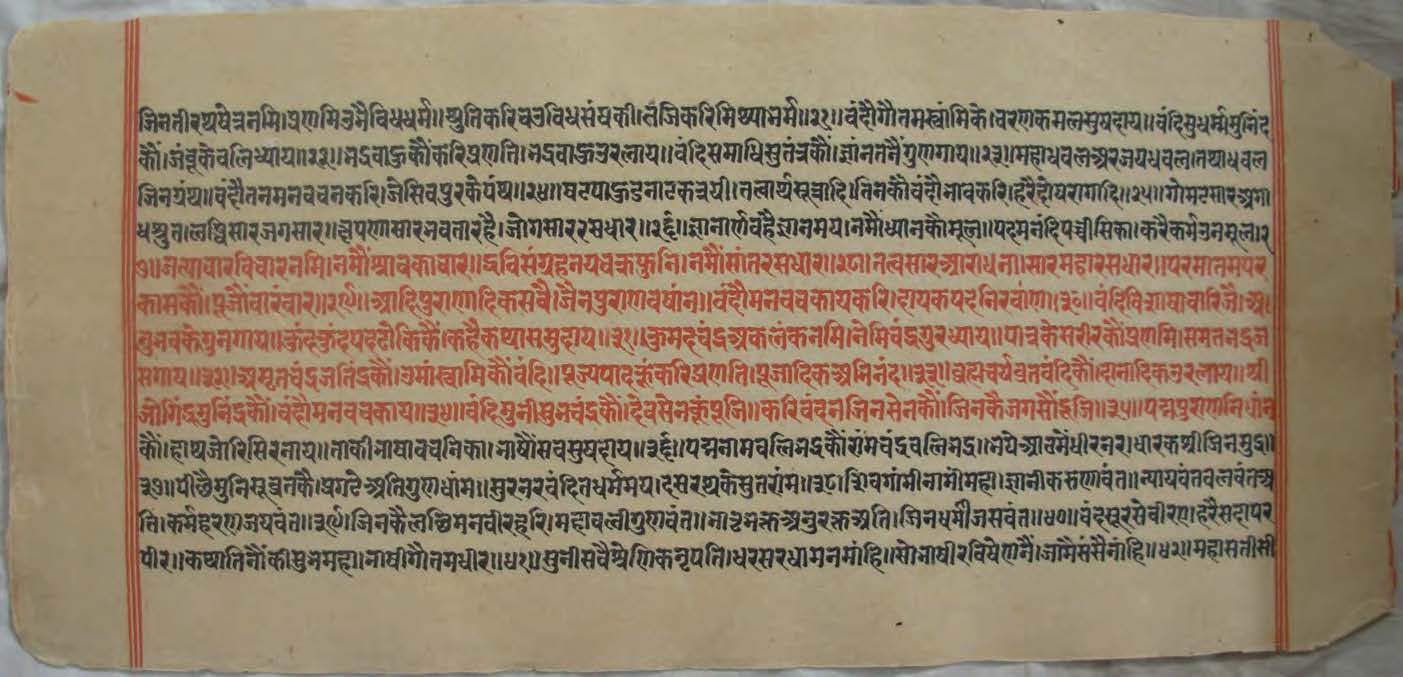 जिनतीरथषेत्रनमि।प्रणमिउभैविधधर्म॥श्रुतिकरिचउविधसंघकी।तजिकरिमिथ्याभर्म॥२१॥वंदौंगौतमस्वांमिके।चरणकमलसुषदाय॥वंदिसुधर्मामुनिंद
कौं।जंबूकेवलिध्याय॥२२॥भद्रवाहुकौंकरिप्रणति।भद्रवाहुउरलाय॥वंदिसमाधिसुतंत्रकौं।ज्ञांनतनैंगुणगाय॥२३॥महाधवलअरजयधवल।तथाधवल
जिनग्रंथ॥वंदौंतनमनवचनकरि।जेसिवपुरकेपंथ॥२४॥षटपाहुडनाटकत्रयी।तत्वार्थसूत्रादि।तिनकौंवंदौंभावकरि।हरैदोषरागादि॥२५॥गोमटसारअगा
धश्रुत।लब्धिसारजगसार॥क्षपणासारभवतारहै।जोगसाररसधार॥२६॥ज्ञानार्णवहैज्ञानमय।नमौंध्यानकौमूल॥पदमनंदिपच्चीसिका।करैकर्मउनमूल॥२
७॥जत्याचारविचारनमि।नमौंश्रावकाचार॥द्रविसंग्रहनयचक्रफुनि।नमौंसांतरसधार॥२८॥तत्वसारआराधना।सारमहारसधार॥परमातमपर
कासकौं।पूजौंवारंवार॥२९॥आदिपुराणादिकसवै।जैनपुराणवषांन॥वंदौंमनवचकायकरि।दायकपदनिरवांण॥३०॥वंदिविभाषाचारिजे।अ
नुभवकेगुनगाय॥कुंदकुंदपदढोकिकैं।कहैकथासमुदाय॥३१॥कुमदचंद्रअकलंकनमि।नेमिचंद्रगुरध्याय॥पात्रकेसरीरकौंप्रणमि।समतभद्रज
सगाय॥३२॥अमृतचंद्रजतिंद्रकौं।उमास्वामिकौंवंदि।पूज्यपादकूंकरिप्रणति।पूजादिकअभिनंद॥३३॥ब्रह्मचर्यव्रतवंदिकौं।दानादिकउरलाय॥श्री
जोगिंद्रमुनिंद्रकौं।वंदौंमनवचकाय॥३४॥वंदिमुनीसुभचंद्रकौं।देवसेनकूंपूजि॥करिवंदनजिनसेनकौं।जिनकैजगसौंदूजि॥३५॥पद्मपुराणनिधांन
कौं।हाथजोरिसिरनाय॥ताकीभाषावचनिका।भाषौंसवसुषदाय॥३६॥पद्मनामवलिभद्रकौ।रांमचंद्रवलिभद्र॥भयेआठमेंधीरनर।धारकश्रीजिनमुद्र॥
३७॥पीछैमुनिसूव्रतकै।प्रगटेअतिगुणधांम॥सुरनरवंदितधर्ममय।दसरथकेसुतरांम॥३८॥शिवगांमीनांमीमहा।ज्ञानीकरुणवंत॥न्यायवंतवलवंतअ
ति।कर्महरणजयवंत॥३९॥जिनकैलछिमनवीरहरि।महावलीगुणवंत॥भ्रातृभक्तअनुरक्तअति।जिनधर्मीजसवंत॥४०॥चंदसूरसेवीरए।हरैसदापर
पीर॥कथातिनौंकीसुभमहा।भाषीगौतमधीर॥४१॥सुनीसवैश्रेणिकनृपति।धरसरधामनमांहि।सोभाषीरविषेणनैं।जामैसंसैनांहि॥४२॥महासतीसी